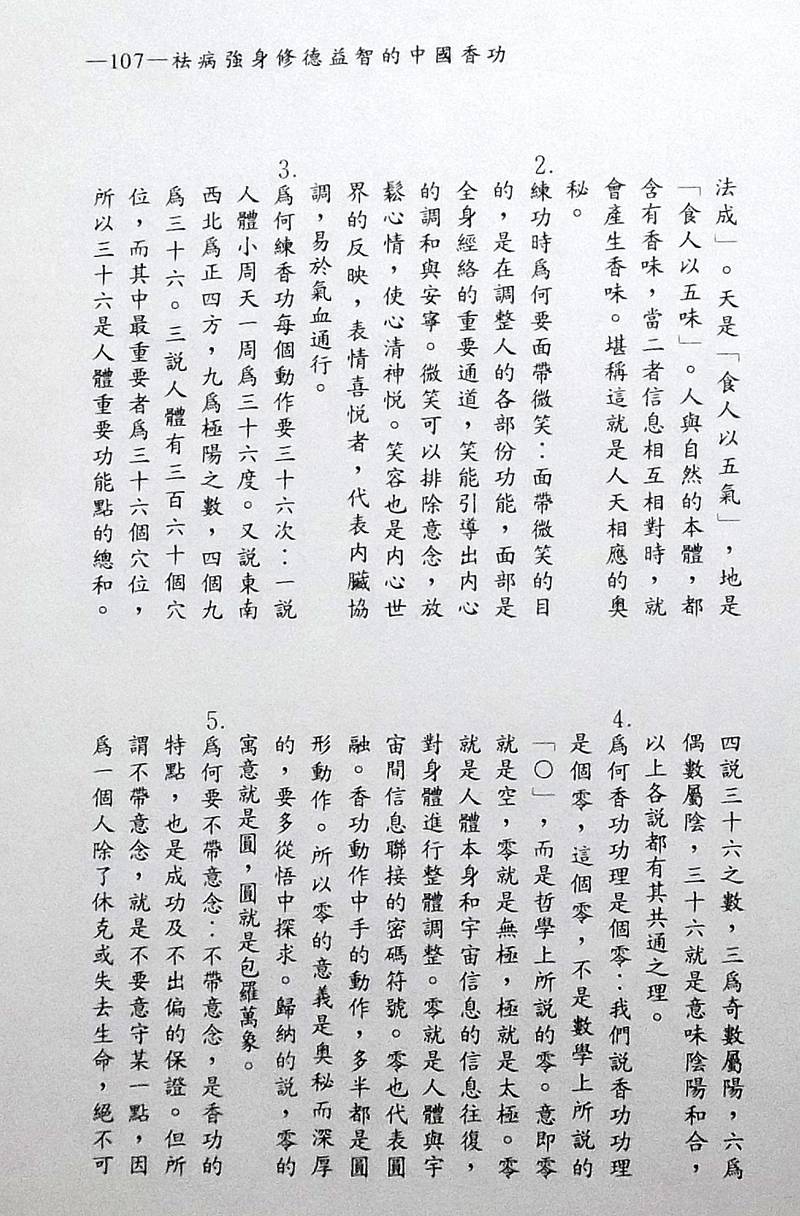 —107—祛病強身修德益智的中國香功
法成」。天是「食人以五氣」，地是
「食人以五味」。人與自然的本體，都
含有香味，當二者信息相互相對時，就
會產生香味。堪稱這就是人天相應的奧
秘。
2.練功時爲何要面帶微笑：面帶微笑的目
的，是在調整人的各部份功能，面部是
全身經絡的重要通道，笑能引導出内心
的調和與安寧。微笑可以排除意念，放
鬆心情，使心清神悦。笑容也是内心世
界的反映，表情喜悦者，代表内臟協
調，易於氣血通行。
3.爲何練香功每個動作要三十六次：一説
人體小周天一周爲三十六度。又説東南
西北爲正四方，九爲極陽之數，四個九
爲三十六。三説人體有三百六十個穴
位，而其中最重要者爲三十六個穴位，
所以三十六是人體重要功能點的總和。
四説三十六之數，三爲奇數屬陽，六爲
偶數屬陰，三十六就是意味陰陽和合，
以上各説都有其共通之理。
4.爲何香功功理是個零：我們説香功功理
是個零，這個零，不是數學上所説的
「〇」，而是哲學上所説的零。意即零
就是空，零就是無極，極就是太極。零
就是人體本身和宇宙信息的信息往復，
對身體進行整體調整。零就是人體與宇
宙間信息聯接的密碼符號。零也代表圓
融。香功動作中手的動作，多半都是圓
形動作。所以零的意義是奧秘而深厚
的，要多從悟中探求。歸納的説，零的
寓意就是圓，圓就是包羅萬象。
5.爲何要不帶意念：不帶意念，是香功的
特點，也是成功及不出偏的保證。但所
謂不帶意念，就是不要意守某一點，因
爲一個人除了休克或失去生命，絕不可